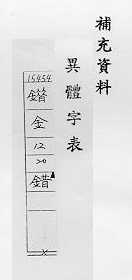 補充資料
異體字表
15454
鐕
金
12
20